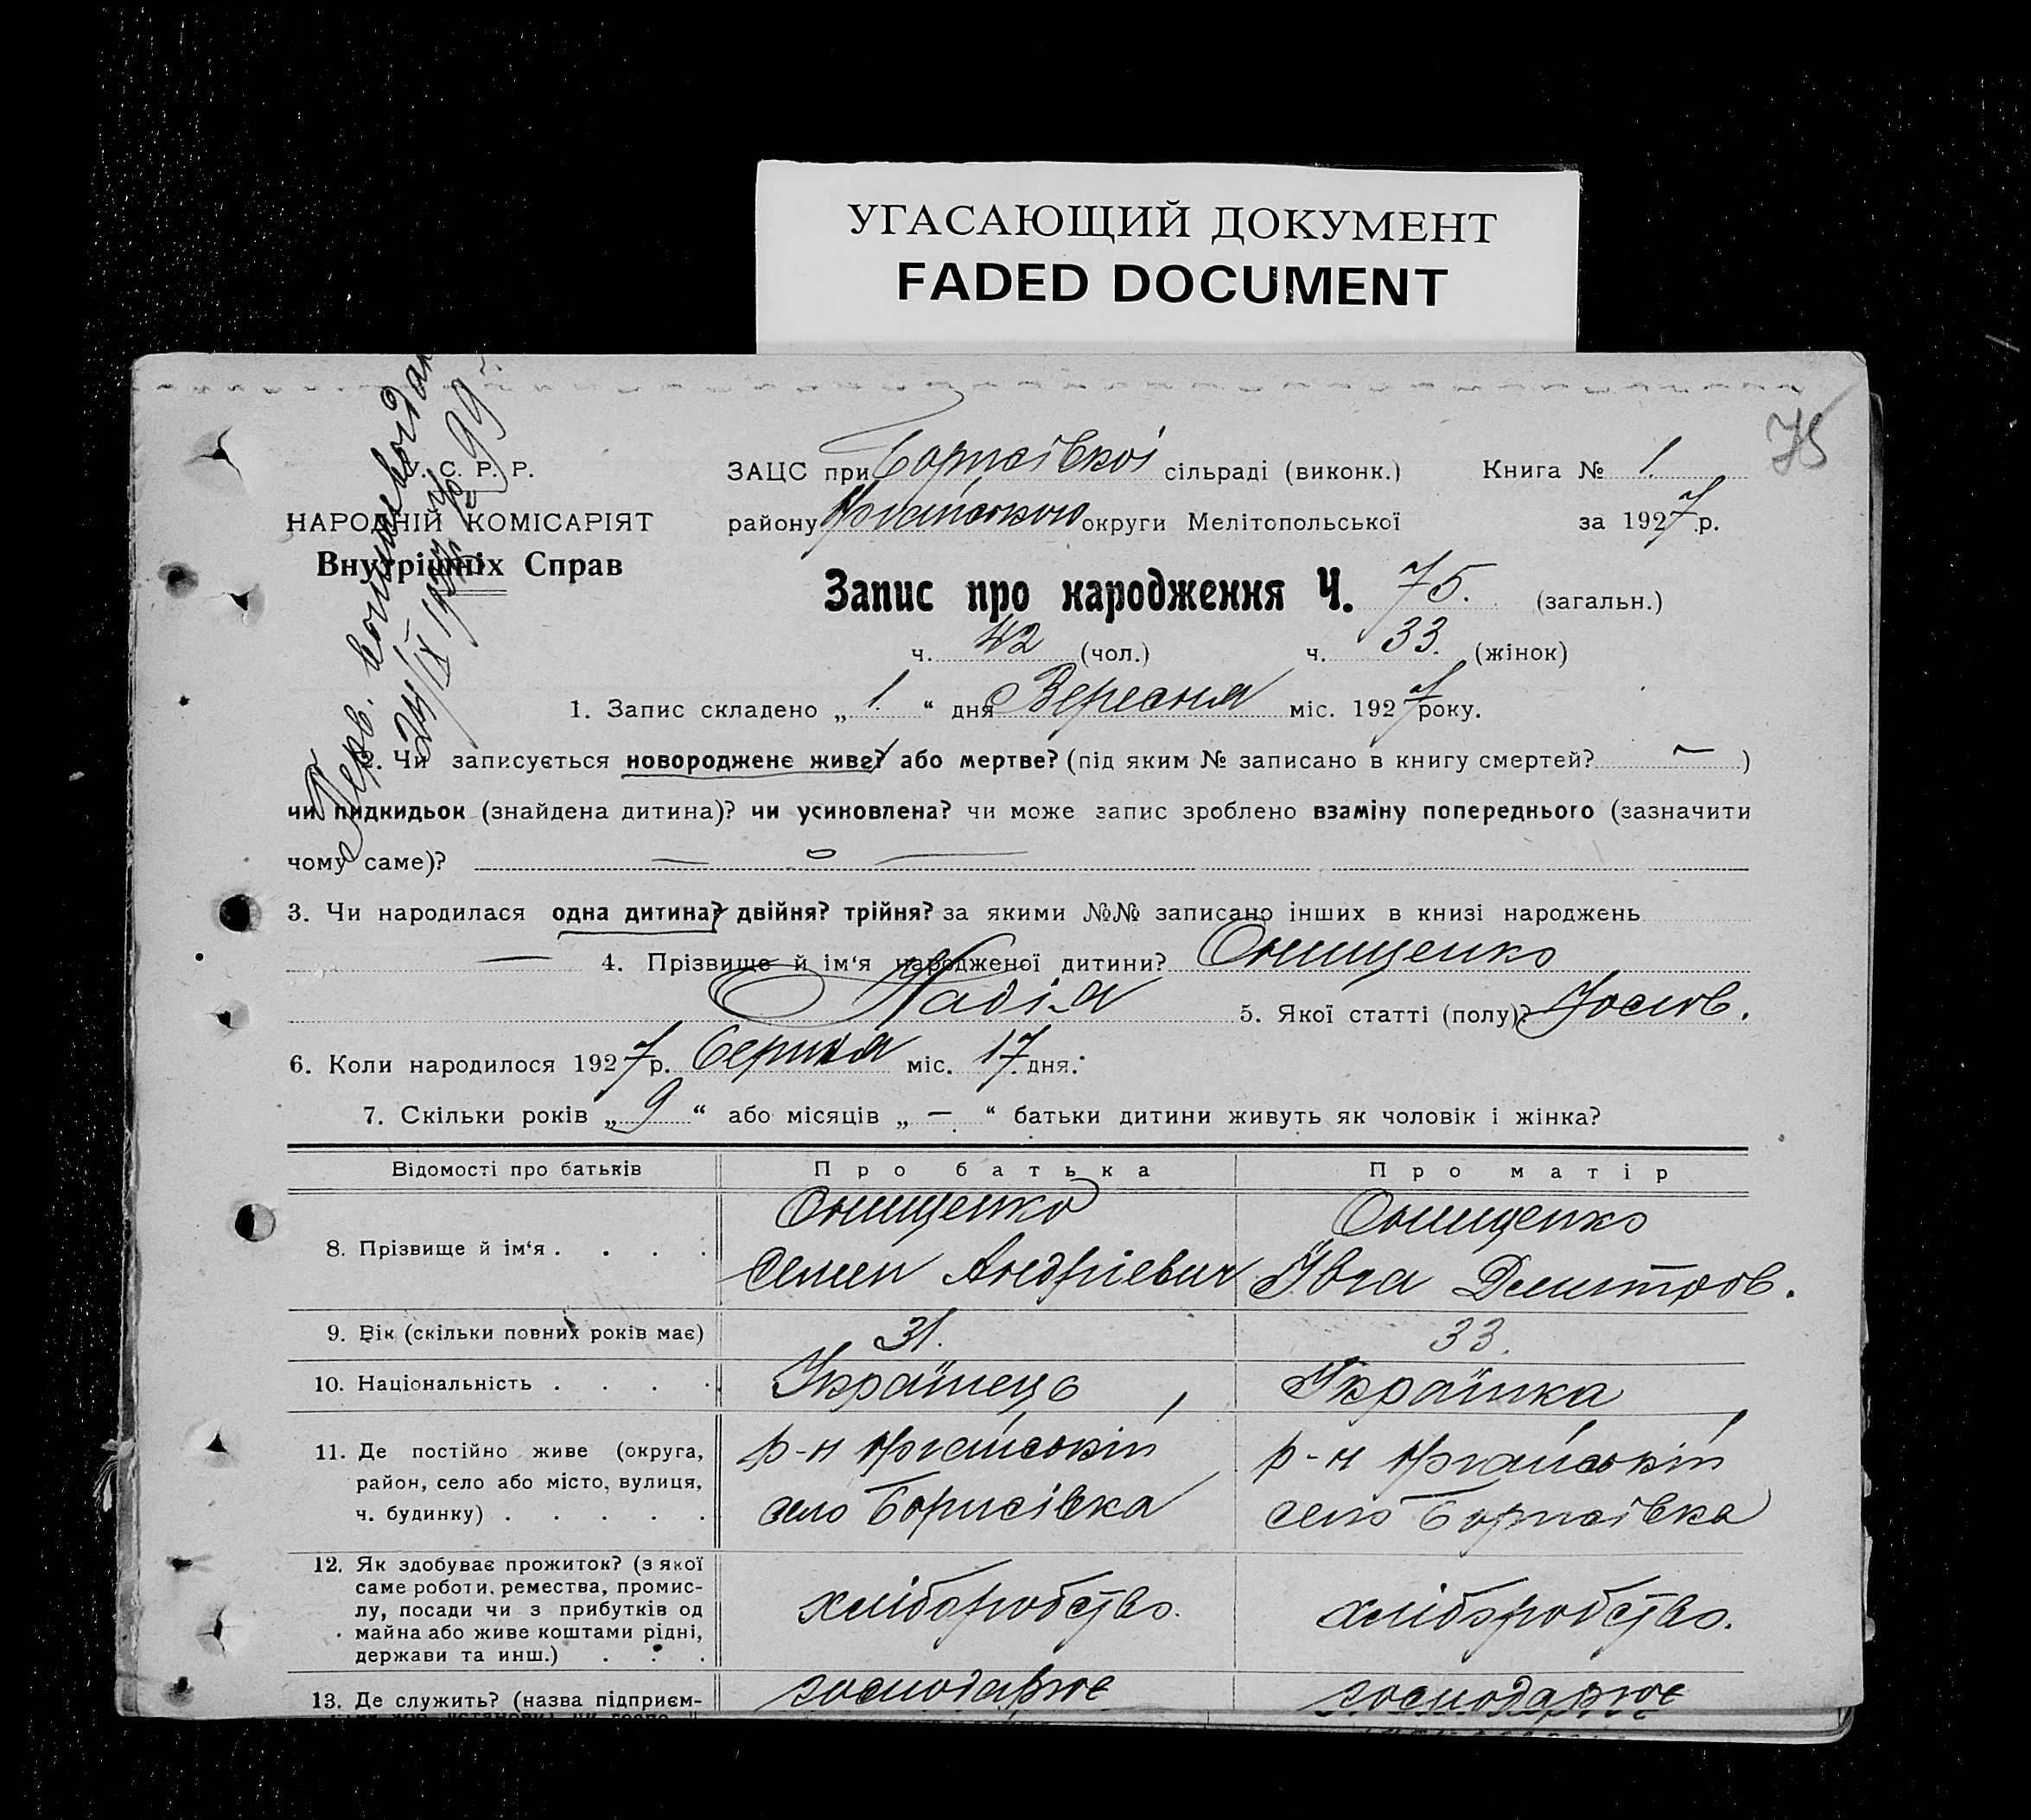 УГАСАЮЩИЙ ДОКУМЕНТ
FADED DOCUMENT
75
У. С. Р. Р.
НАРОДНІЙ КОМІСАРІЯТ
Внутрішніх Справ
ЗАЦС при Борисівкої сільраді (виконк.) Книга № 1.
району округи Мелітопольської за 1927 р.
Запис про народження Ч. 75. (загальн.)
ч. 42 (чол.) ч. 33. (жінок)
1. Запис складено „ 1. “ дня Вересня міс. 1927 року.
2. Чи записується новороджене живе? або мертве? (під яким № записано в книгу смертей? — )
чи підкидьок (знайдена дитина)? чи усиновлена? чи може запис зроблено взаміну попереднього (зазначити
чому саме)?
3. Чи народилася одна дитина? двійня? трійня? за якими №№ записано інших в книзі народжень
— 4. Прізвище й ім‘я народженої дитини? Онищенко
Надія 5. Якої статті (полу)? Жіноч.
6. Коли народилося 1927 р. Серпня міс. 17 дня.
7. Скільки років „ 9 “ або місяців „ — “ батьки дитини живуть як чоловік і жінка?
Відомості про батьків Про батька Про матір
8. Прізвище й ім‘я . . . . Онищенко Онищенко
Семен Андрієвич Ївга Дмитров.
9. Вік (скільки повних років має) 31. 33.
10. Національність . . . . Українець Українка
11. Де постійно живе (округа, район, село або місто, вулиця, ч. будинку) . . . . . р-н село Борисівка р-н село Борисівка
12. Як здобуває прожиток? (з якої саме роботи, ремества, промислу, посади чи з прибутків од майна або живе коштами рідні, держави та инш.) . . . хліборобство. хліборобство.
13. Де служить? (назва підприєм- господарює господарює